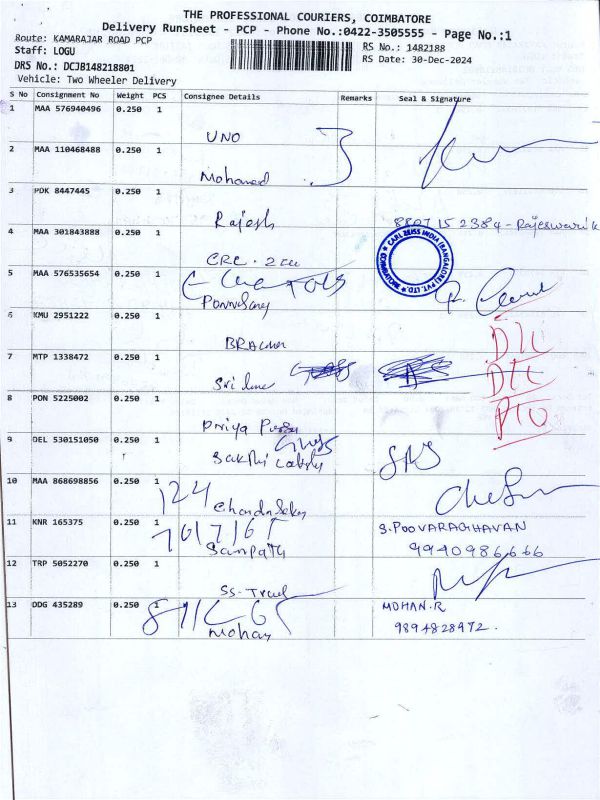 THE PROFESSIONAL COURIERS, COIMBATORE
Delivery Runsheet - PCP - Phone No.:0422-3505555 - Page No.:1
Route: KAMARAJAR ROAD PCP
RS No.: 1482188
Staff: LOGU
RS Date: 30-Dec-2024
DRS No.: DCJB148218801
Vehicle: Two Wheeler Delivery
S No Consignment No Weight PCS Consignee Details Remarks Seal & Signature
1 MAA 576940496 0.250 1
UNO
2 MAA 110468488 0.250 1
Mohamed
3 PDK 8447445 0.250 1
Rajesh 8807152384-Rajeswari K
4 MAA 301843888 0.250 1
CARL ZEISS INDIA (BANGALORE) PVT. LTD. COIMBATORE
5 MAA 576535654 0.250 1
6 KMU 2951222 0.250 1
7 MTP 1338472 0.250 1
8 PON 5225002 0.250 1
Priya
9 DEL 530151050 0.250 1
Sakthi
10 MAA 868698856 0.250 1
124
11 KNR 165375 0.250 1
S. POOVARAGHAVAN
Sampath 9940986666
12 TRP 5052270 0.250 1
13 ODG 435289 0.250 1
MOHAN.R
Mohan 9894828972.